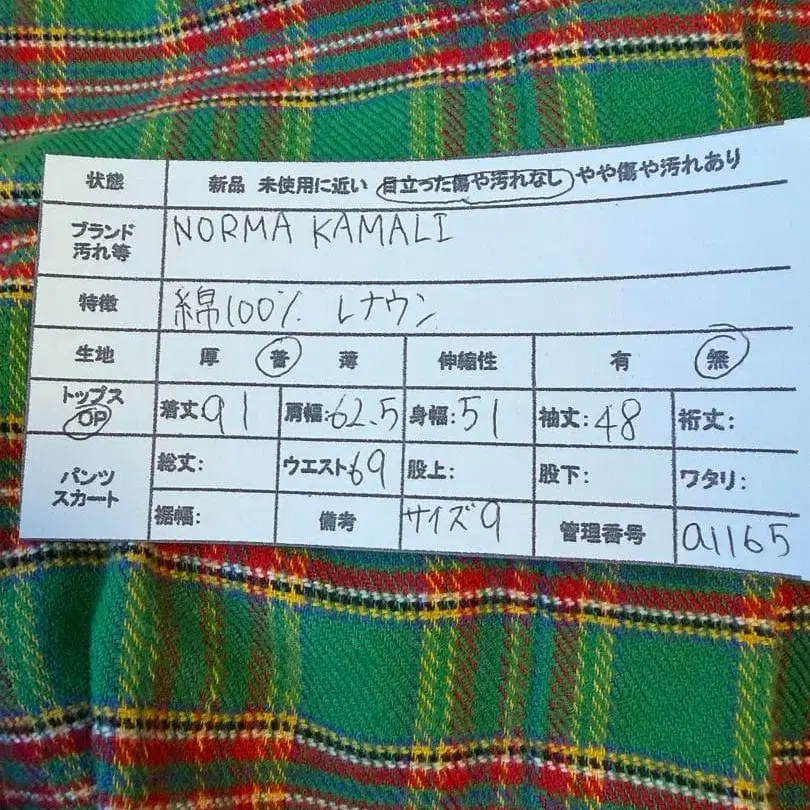 状態 新品 未使用に近い 目立った傷や汚れなし やや傷や汚れあり
ブランド
汚れ等 NORMA KAMALI
特徴 綿100% レナウン
生地 厚 普 薄 伸縮性 有 無
トップス
OP 着丈:91 肩幅:62.5 身幅:51 袖丈:48 裄丈:
パンツ
スカート 総丈: ウエスト:69 股上: 股下: ワタリ:
裾幅: 備考 サイズ9 管理番号 a1165